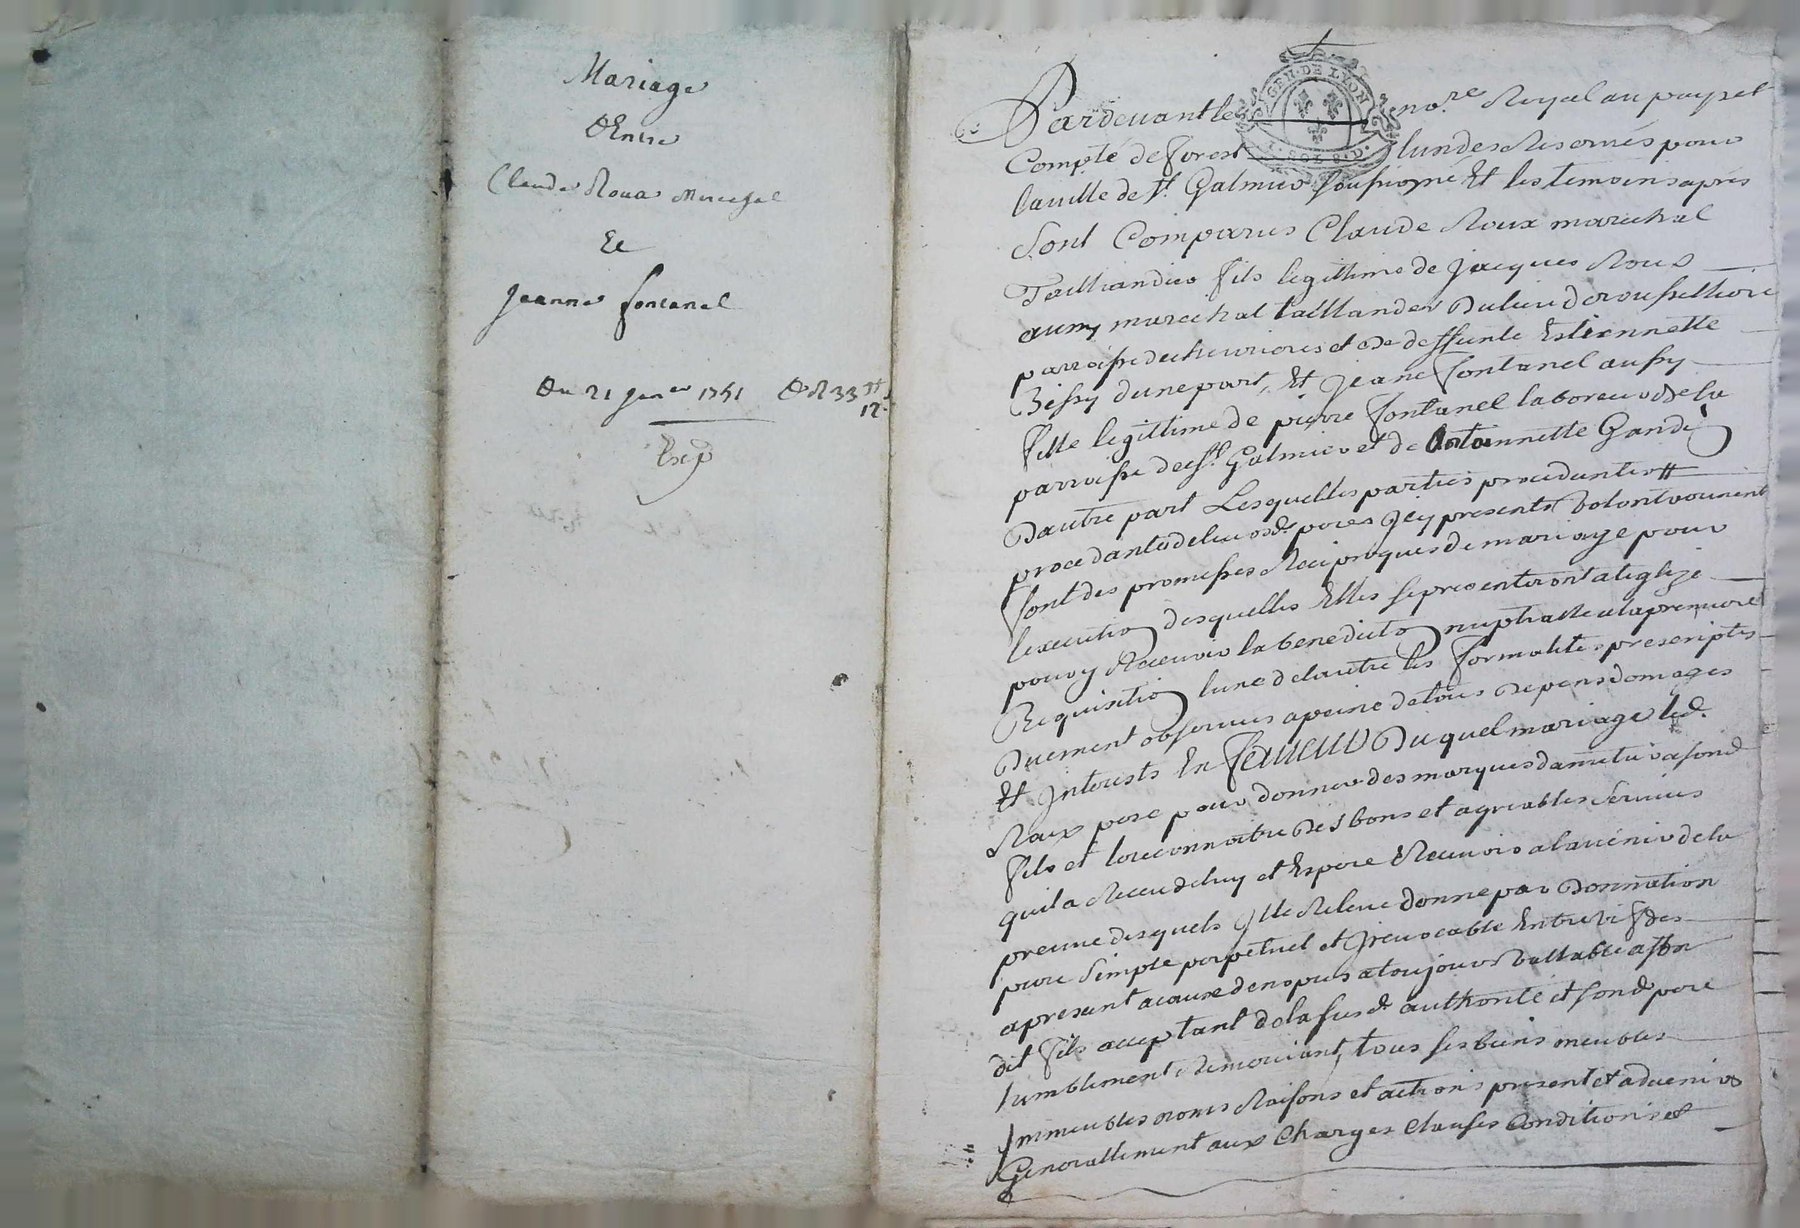 Mariage
Entre
Claude Roux Marechal
Et
Jeanne fontanel
Du 21 Janer 1751
Exp
GEN. DE LYON
1. SOL 8. D.
Pardevant le nore. Royal au pays et
Compté de forest lun des Reservés pour
la ville de st. Galmier soussigné Et les temoins apres
sont Comparus Claude Roux marechal
Tailliandier fils legittime de Jacques Roux
aussy marechal taillander du lieu de
parroisse de et de deffunte Estiennette
Bissy dune part, Et Jeane fontanel aussy
fille legittime de pierre fontanel laboreur de la
parroisse de st. Galmier et de Antoinnette
Dautre part Lesquelles parties procedantes
procedantes de leursd. peres Jcy presents Volontairement
font des promesses Reciproques de mariage pour
lexecution desquelles Elles se presenteront a leglize
pour y Recevoir la benediction nuptialle a la premiere
Requisition lune de lautre les formalités prescriptes
Duement observées a peine de tous depens domages
Et Jnterests En faveur Duquel mariage led.
Roux pere pour donner des marques damitié a sond.
fils et Reconnoitre des bons et agreables services
quil a Receu de luy et Espere Recevoir a lavenir de la
preuve desquels Jl le Releve donne par donnation
pure simple perpetuel et Jrevocable Entre vifs des
apresent a cause de nopces a toujours vallable a son
dit fils acceptant de la susd. authorité et sond. pere
humblement tous ses biens meubles
Jmmeubles noms Raisons et actions present et advenir
Generallement aux Charges Clauses Conditions et